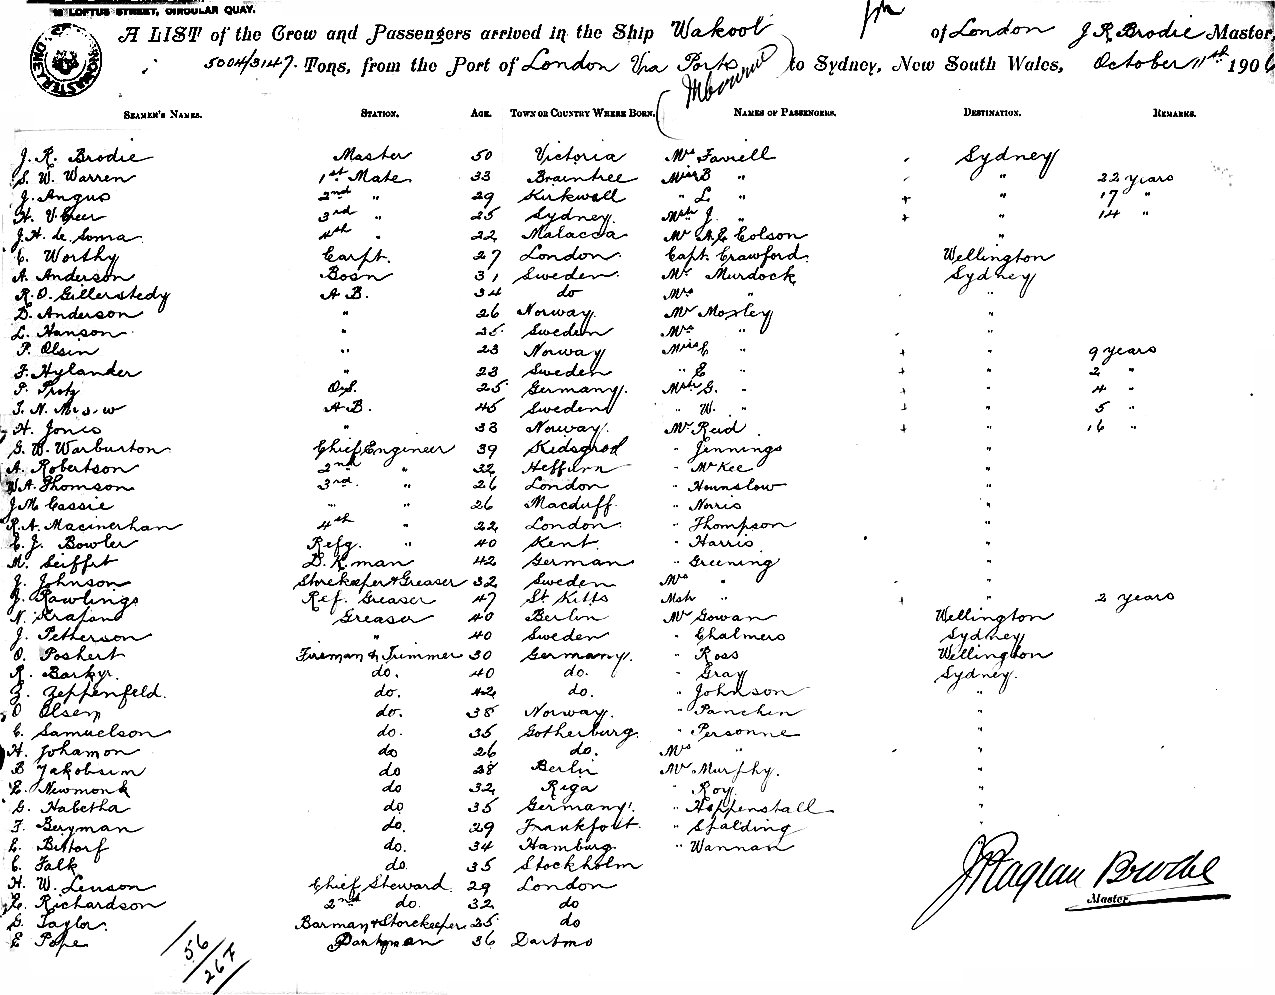 LOFTUS STREET, CIRCULAR QUAY.
A LIST of the Crew and Passengers arrived in the Ship Wakool of London J R Brodie Master,
5004/3147 Tons, from the Port of London Via Ports Mbourne to Sydney, New South Wales, October 11th 1906
SEAMEN'S NAMES. STATION. AGE. TOWN OR COUNTRY WHERE BORN. NAMES OF PASSENGERS. DESTINATION. REMARKS.
J. R. Brodie Master 50 Victoria Mrs Farrell Sydney
S. W. Warren 1st Mate 33 Braintree Miss B " " 22 years
J. Angus 2nd " 29 Kirkwall " L. " + " 17 "
H. 3rd " 25 Sydney. Mstr J. " + " 14 "
J. H. de Soma 4th " 22 Malacca Mr A. E. Colson "
C. Worthy Carpt. 27 London Capt. Crawford. Wellington
A. Anderson Bosn 31 Sweden. Mr Murdock Sydney
R. O. Gillerstedy A. B. 34 do Mrs " "
D. Anderson " 26 Norway. Mr Moxley "
L. Hanson " 25 Sweden Mrs " "
P. Olsen " 23 Norway Miss E " + " 9 years
F. Hylander " 23 Sweden " E " + " 2 "
P. O.S. 25 Germany. Mstr G. " + " 4 "
J. N. A.B. 45 Sweden " W. " + " 5 "
H. Jones " 33 Norway. Mr Reid + " 16 "
G. W. Warburton Chief Engineer 39 Kidsgrod " Jennings "
A. Robertson 2nd " 32 " McKee "
W. A. Thomson 3rd " 26 London " Hounslow "
J. M. Cassie " " 26 Macduff. " Norris "
R. A. Macinerhan 4th " 22 London " Thompson "
C. J. Bowler Refg. " 40 Kent. " Harris "
M. Seiffrt D. K. man 42 German " Greening "
J. Johnson Storekeeper & Greaser 32 Sweden Mrs " "
J. Rawlings Ref. Greaser 47 St Kitts Mstr " + " 2 years
N. Greaser 40 Berlin Mr Gowan Wellington
J. Petherson " 40 Sweden " Chalmers Sydney
O. Poshert Fireman & Trimmer 30 Germany. " Ross Wellington
R. Barkyr. do. 40 do. " Gray Sydney.
Z. Zeppenfeld. do. 42 do. " Johnson "
O Olsen do. 38 Norway. " Panchen "
C. Samuelson do. 35 Gotherburg. " Personne "
H. Johamon do 26 do. Mrs " "
B Jakobsum do 28 Berlin Mr Murphy. "
E. Newmonk do 32 Riga " Roy. "
G. Habetha do 35 Germany. " Heppenstall "
F. Beryman do. 29 Frankfort. " Spalding "
E. Bittorf do. 34 Hamburg. " Wannan "
C. Falk do. 35 Stockholm
H. W. Lenson Chief Steward 29 London
C. Richardson 2nd do. 32 do
G. Taylor. Barman & Storekeeper 25 do
E Pope 36 Dartmo
J Raglan Brodie
Master.
56
267